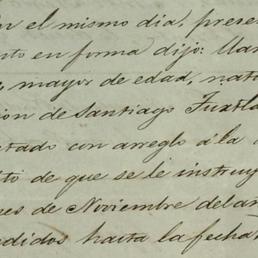 en el mismo dia, presen
nto en forma dijo: llam
mayor de edad, nat
ion de Santiago Tuxtla
etado con arreglo á la
to de que se le instruy
es de Noviembre del añ
didos hasta la fecha